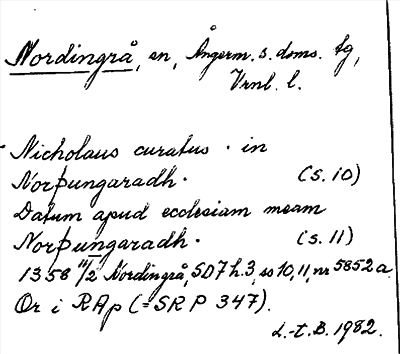 Nordingrå, sn, Ångerm. s. doms. tg,
Vrnl. l.
Nicholaus curatus · in
Norþungaradh · (s. 10)
Datum apud ecclesiam meam
Norþungaradh · (s. 11)
1358 11/2 Nordingrå, SD7 h.3, ss 10, 11, nr 5852 a.
Or i RAp (= SRP 347).
L.-t. B. 1982.